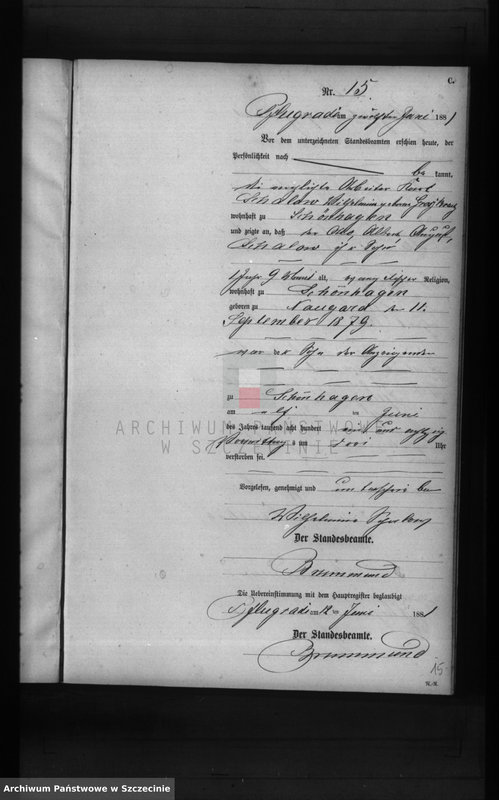 C.
Nr. 15
Pflugrade am zwölften Juni 1881
Vor dem unterzeichneten Standesbeamten erschien heute, der
Persönlichkeit nach
be kannt,
die verehelichte Arbeiter
Schalow Wilhelmine geborne
wohnhaft zu Schönhagen
und zeigte an, daß der Otto, Albert August,
Schalow ihr Sohn
1 Jahr 9 Monat alt, evangelischer Religion,
wohnhaft zu Schönhagen
geboren zu Naugard den 11.
September 1879.
war der Sohn der Anzeigenden
zu Schönhagen
am elf ten Juni
des Jahres tausend acht hundert ein und achtzig
Vormittags um drei Uhr
verstorben sei.
Vorgelesen, genehmigt und unterschrieben
Wilhelmine Schalow
Der Standesbeamte.
Brummund
Die Uebereinstimmung mit dem Hauptregister beglaubigt
Pflugrade am 12 ten Juni 1881
Der Standesbeamte.
Brummund
15
ARCHIWUM PAŃSTWOWE
W SZCZECINIE
Archiwum Państwowe w Szczecinie